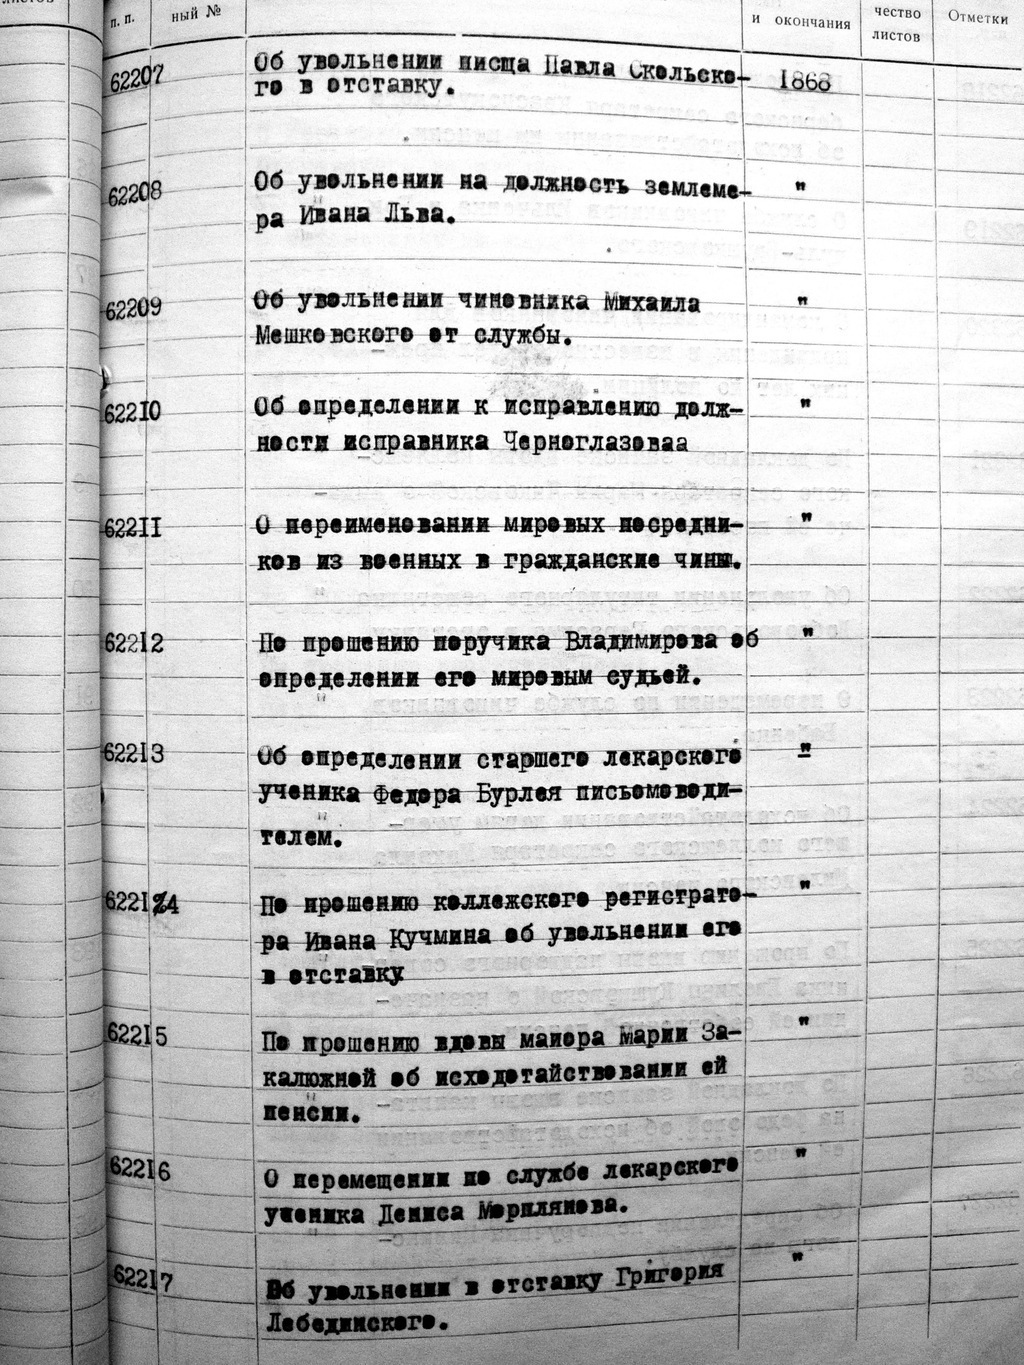 листов
п. п.
ный №
и окончания
чество
листов
Отметки
62207
Об увольнении писца Павла Скольско-
го в отставку.
1868
62208
Об увольнении на должность землеме-
ра Ивана Льва.
"
62209
Об увольнении чиновника Михаила
Мешковского от службы.
"
62210
Об определении к исправлению долж-
ности исправника Черноглазоваа
"
62211
О переименовании мировых посредни-
ков из военных в гражданские чины.
"
62212
По прошению поручика Владимирова об
определении его мировым судьей.
"
62213
Об определении старшего лекарского
ученика Федора Бурлея письмоводи-
телем.
"
62214
По прошению коллежского регистрато-
ра Ивана Кучмина об увольнении его
в отставку
"
62215
По прошению вдовы майора Марии За-
калюжной об исходотайствовании ей
пенсии.
"
62216
О перемещении по службе лекарского
ученика Дениса
"
62217
Об увольнении в отставку Григория
Лебединского.
"